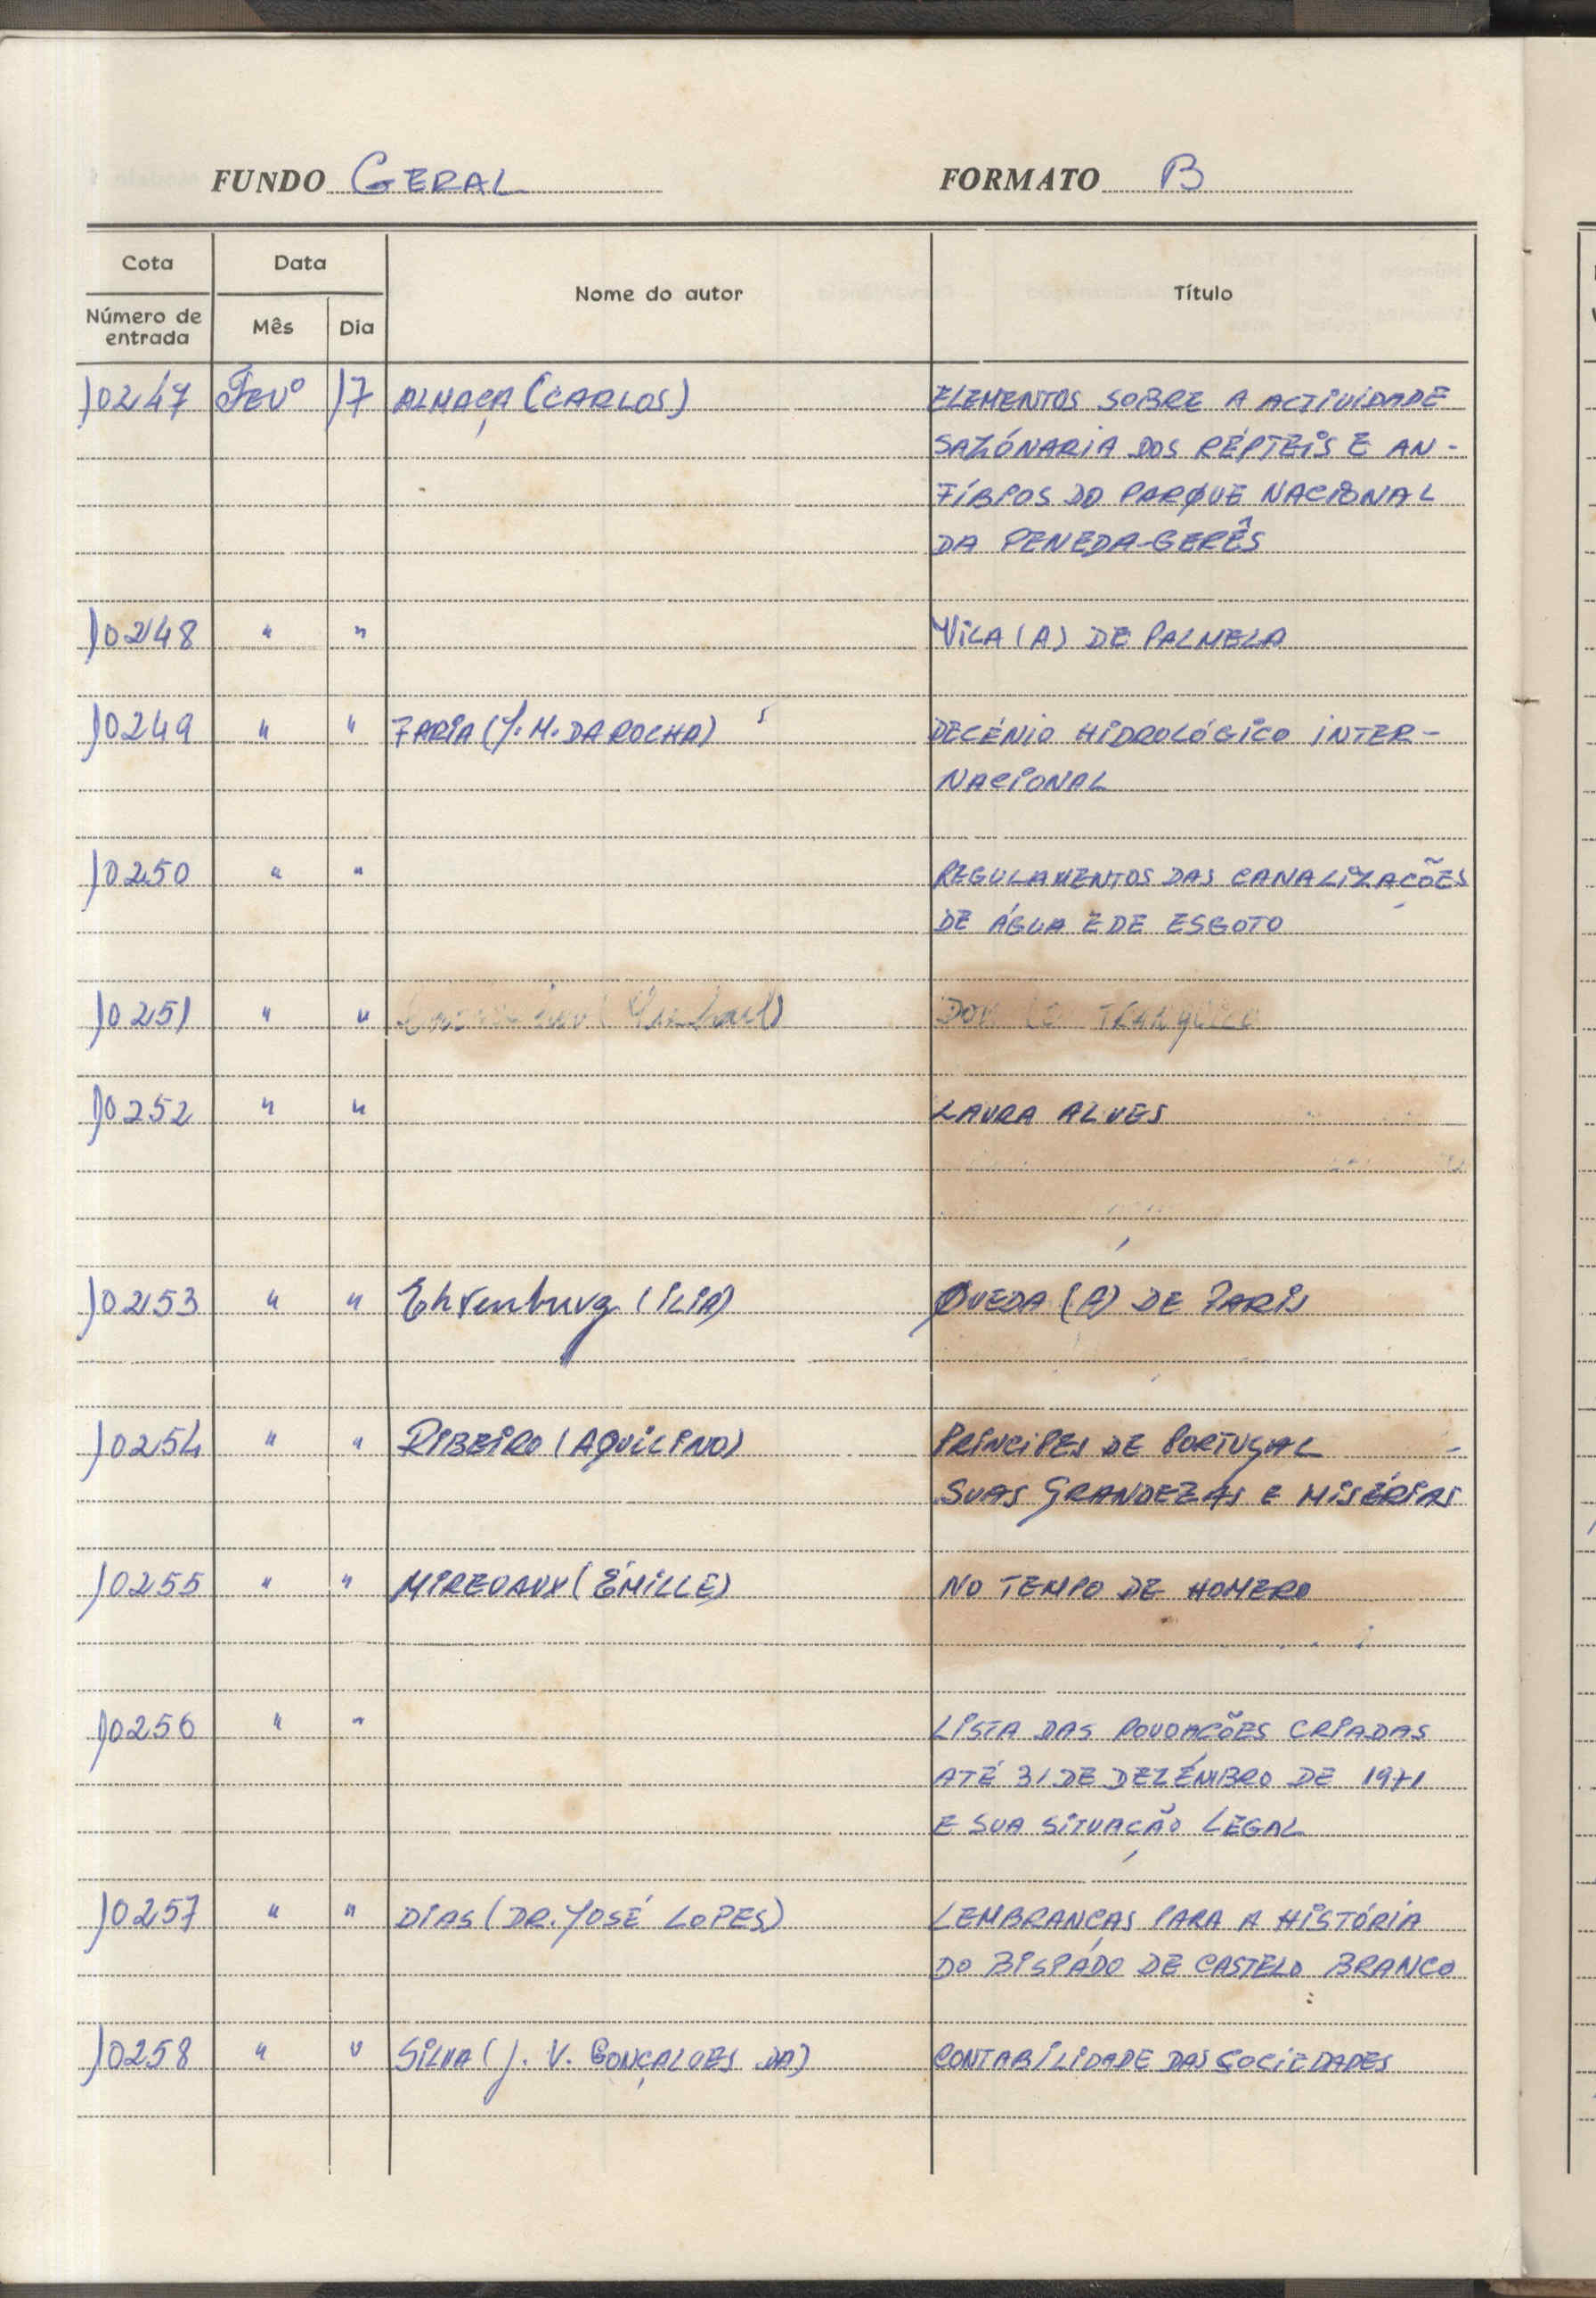 FUNDO GERAL FORMATO B
Cota Data Nome do autor Título
Número de entrada Mês Dia
10247 Fevº 17 ALMAÇA (CARLOS) ELEMENTOS SOBRE A ACTIVIDADE
SAZÓNARIA DOS RÉPTEIS E AN-
FÍBIOS DO PARQUE NACIONAL
DA PENEDA-GERÊS
10248 " " VILA (A) DE PALMELA
10249 " " FARIA (J. M. DA ROCHA) DECÉNIO HIDROLÓGICO INTER-
NACIONAL
10250 " " REGULAMENTOS DAS CANALIZAÇÕES
DE ÁGUA E DE ESGOTO
10251 " " DON TRANQUILO
10252 " " LAURA ALVES
10253 " " Ehrenburg (ILIA) QUEDA (A) DE PARIS
10254 " " RIBEIRO (AQUILINO) PRINCIPES DE PORTUGAL -
SUAS GRANDEZAS E MISÉRIAS
10255 " " MIREUAUX (ÉMILLE) NO TEMPO DE HOMERO
10256 " " LISTA DAS POVOAÇÕES CRIADAS
ATÉ 31 DE DEZÉMBRO DE 1971
E SUA SITUAÇÃO LEGAL
10257 " " DIAS (DR. JOSÉ LOPES) LEMBRANÇAS PARA A HISTÓRIA
DO BISPÁDO DE CASTELO BRANCO
10258 " " SILVA (J. V. GONÇALVES DA) CONTABILIDADE DAS SOCIEDADES